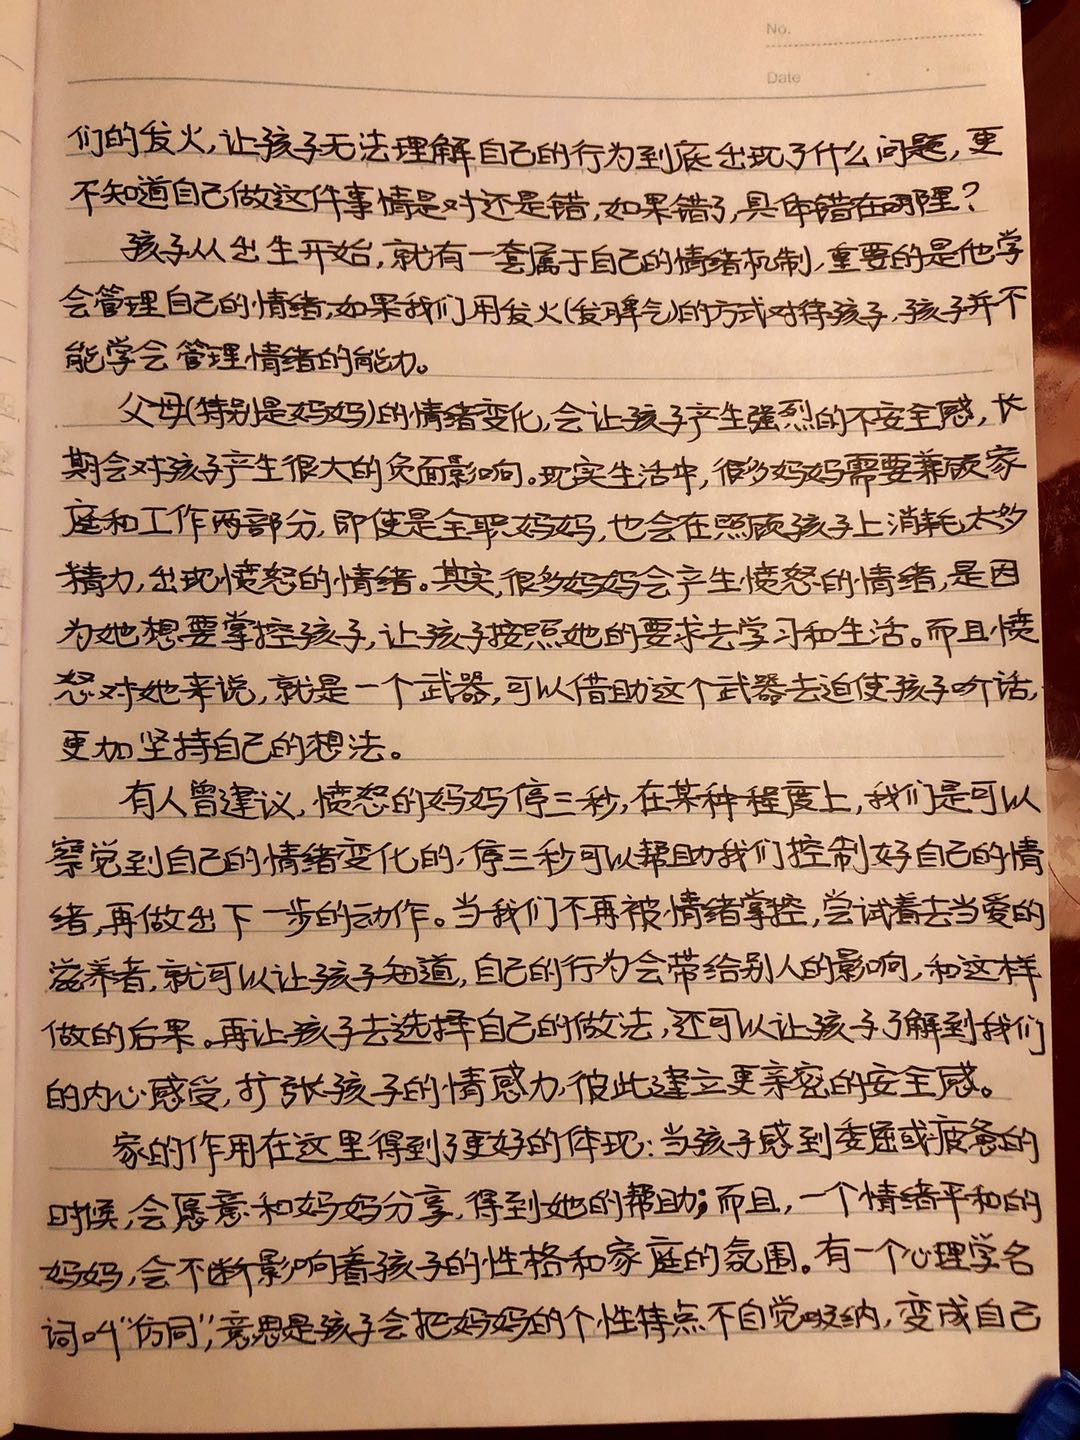 No.
Date
们的发火,让孩子无法理解自己的行为到底出现了什么问题,更
不知道自己做这件事情是对还是错,如果错了,具体错在哪里?
孩子从出生开始,就有一套属于自己的情绪机制,重要的是他学
会管理自己的情绪,如果我们用发火(发脾气)的方式对待孩子,孩子并不
能学会管理情绪的能力。
父母(特别是妈妈)的情绪变化,会让孩子产生强烈的不安全感,长
期会对孩子产生很大的负面影响。现实生活中,很多妈妈需要兼顾家
庭和工作两部分,即使是全职妈妈,也会在照顾孩子上消耗太多
精力,出现愤怒的情绪。其实,很多妈妈会产生愤怒的情绪,是因
为她想要掌控孩子,让孩子按照她的要求去学习和生活。而且愤
怒对她来说,就是一个武器,可以借助这个武器去迫使孩子听话,
更加坚持自己的想法。
有人曾建议,愤怒的妈妈停三秒,在某种程度上,我们是可以
察觉到自己的情绪变化的,停三秒可以帮助我们控制好自己的情
绪,再做出下一步的动作。当我们不再被情绪掌控,尝试着去当爱的
滋养者,就可以让孩子知道,自己的行为会带给别人的影响,和这样
做的后果。再让孩子去选择自己的做法,还可以让孩子了解到我们
的内心感受,扩张孩子的情感力,彼此建立更亲密的安全感。
家的作用在这里得到了更好的体现:当孩子感到委屈或疲惫的
时候,会愿意和妈妈分享,得到她的帮助;而且,一个情绪平和的
妈妈,会不断影响着孩子的性格和家庭的氛围。有一个心理学名
词叫“仿同”,意思是孩子会把妈妈的个性特点不自觉吸纳,变成自己